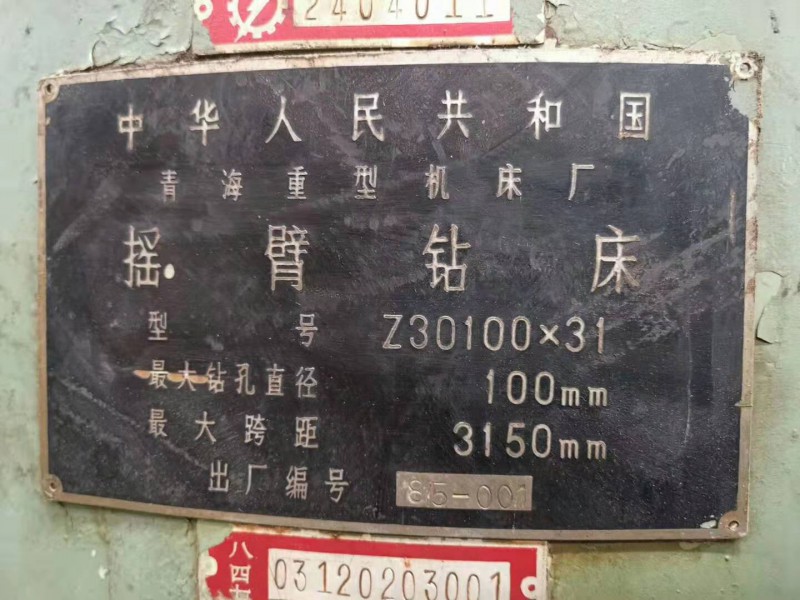 2404011
中华人民共和国
青海重型机床厂
摇臂钻床
型号 Z30100×31
最大钻孔直径 100mm
最大跨距 3150mm
出厂编号 85-001
八四
03120203001